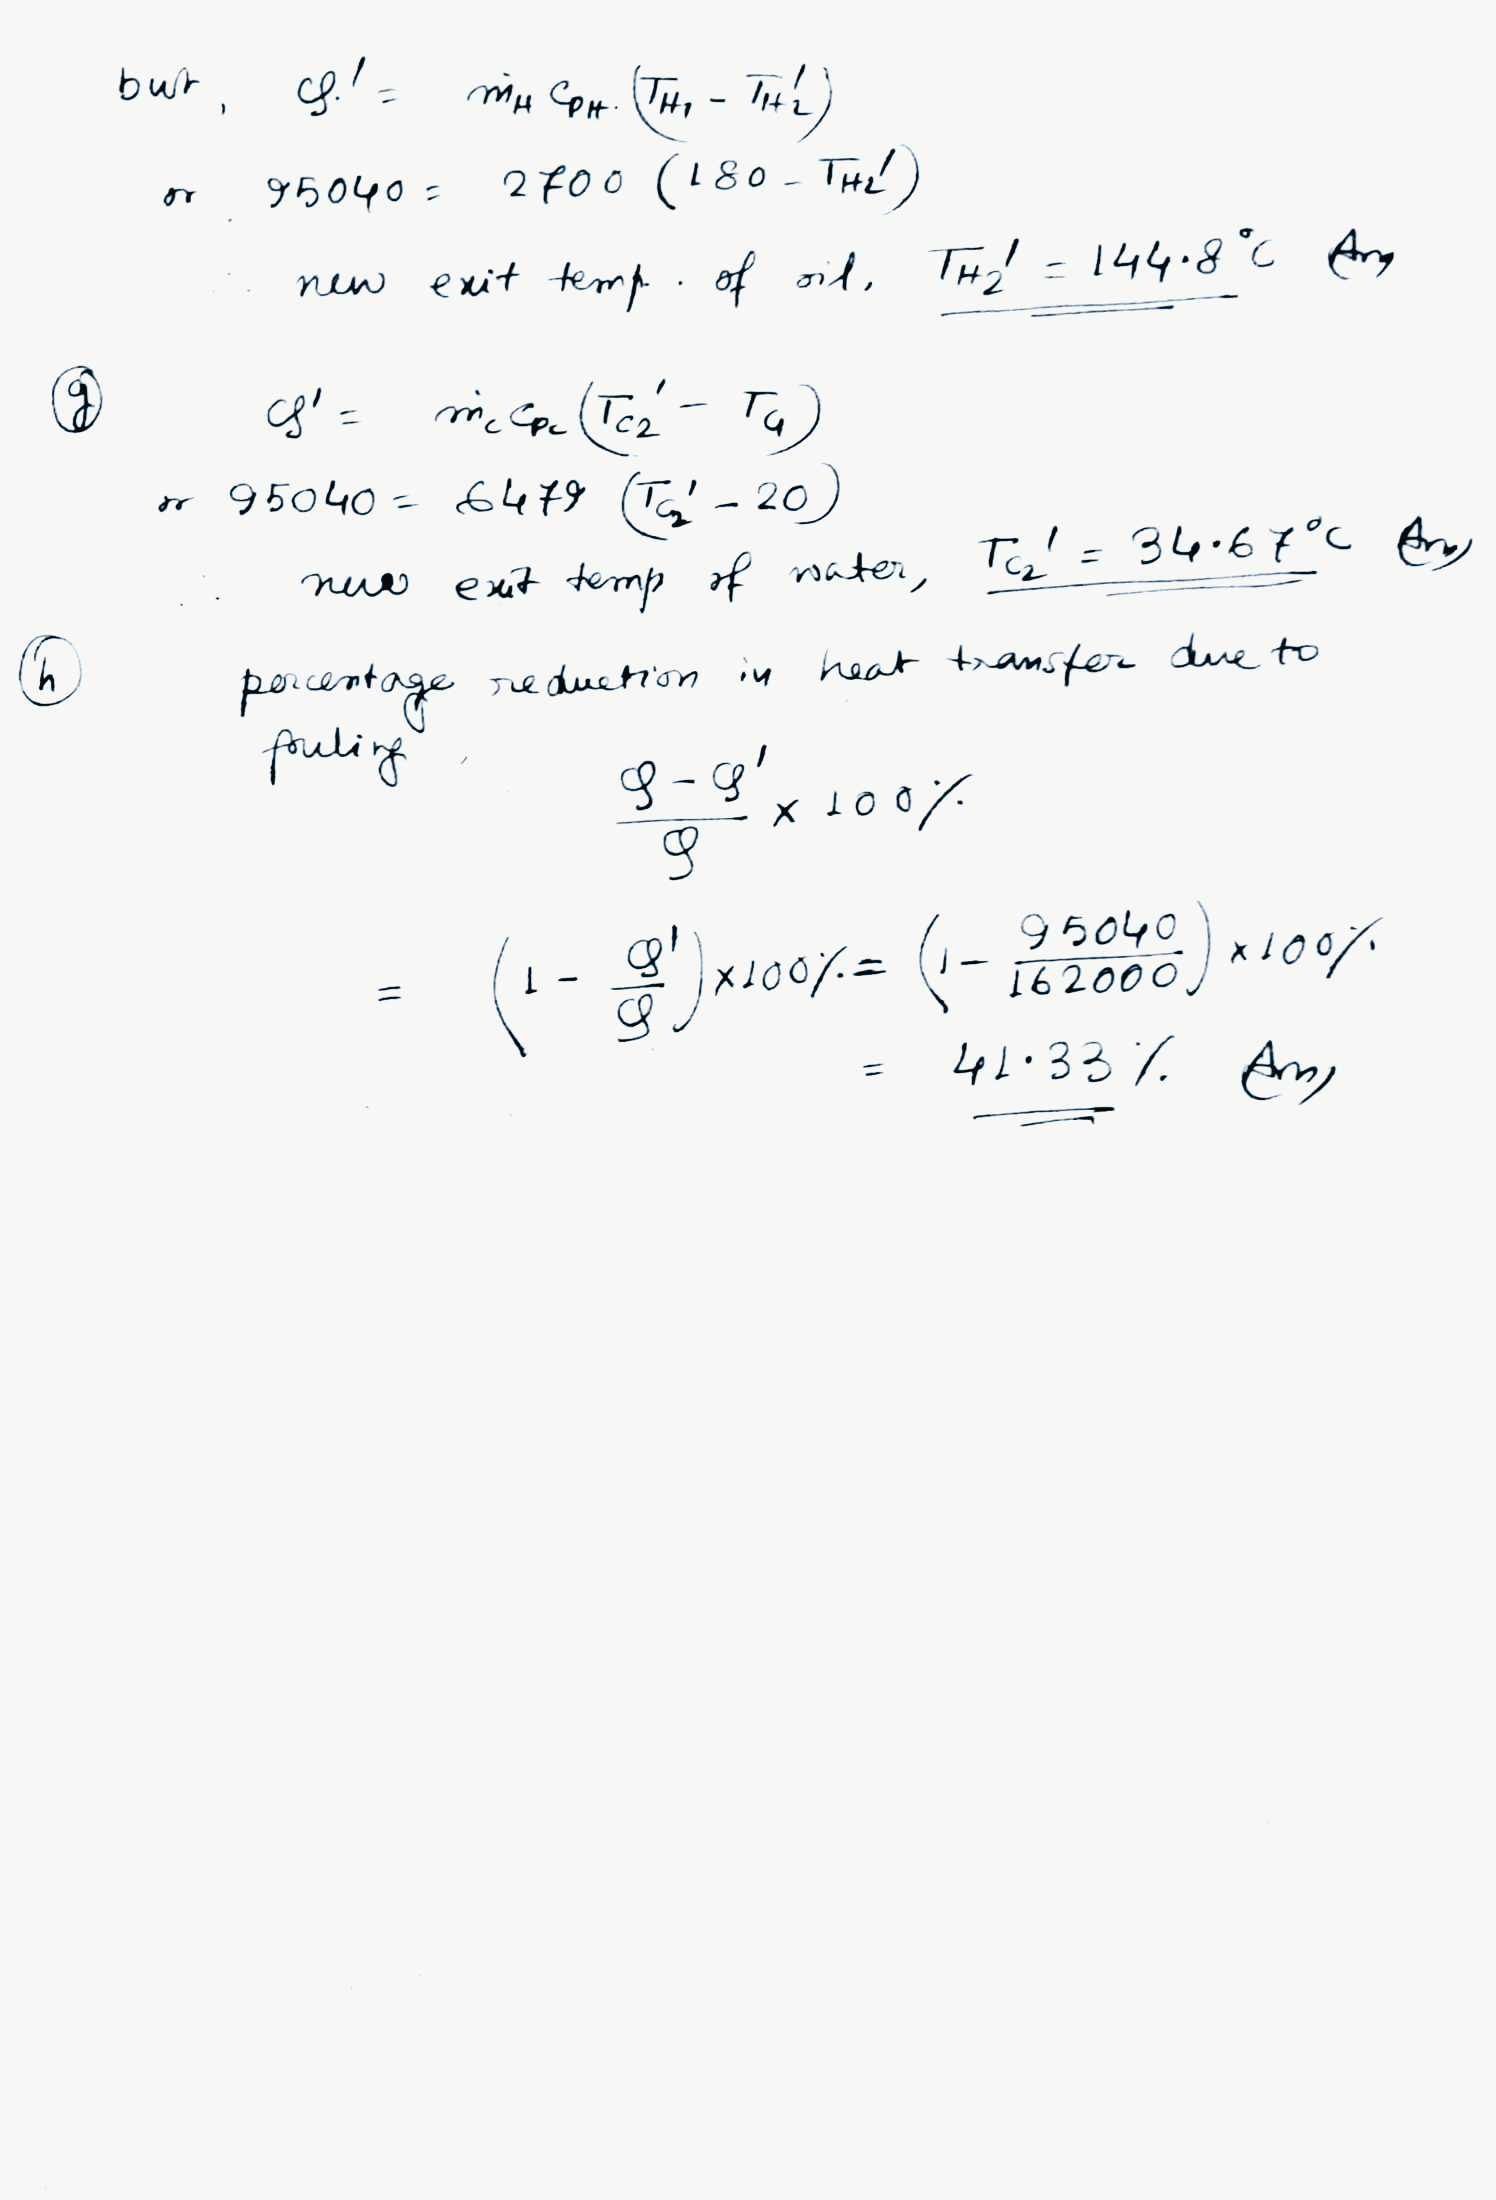 but, Q.' = ṁH CPH. (TH1 - TH2')
or 95040 = 2700 (180 - TH2')
∴ new exit temp. of oil, TH2' = 144.8°C Ans
(g) Q' = ṁc Cpc (TC2' - TC1)
or 95040 = 6479 (TC2' - 20)
∴ new exit temp of water, TC2' = 34.67°C Ans
(h) percentage reduction in heat transfer due to
fouling,
(Q - Q')/Q × 100%
= (1 - Q'/Q) ×100% = (1 - 95040/162000) ×100%
= 41.33% Ans